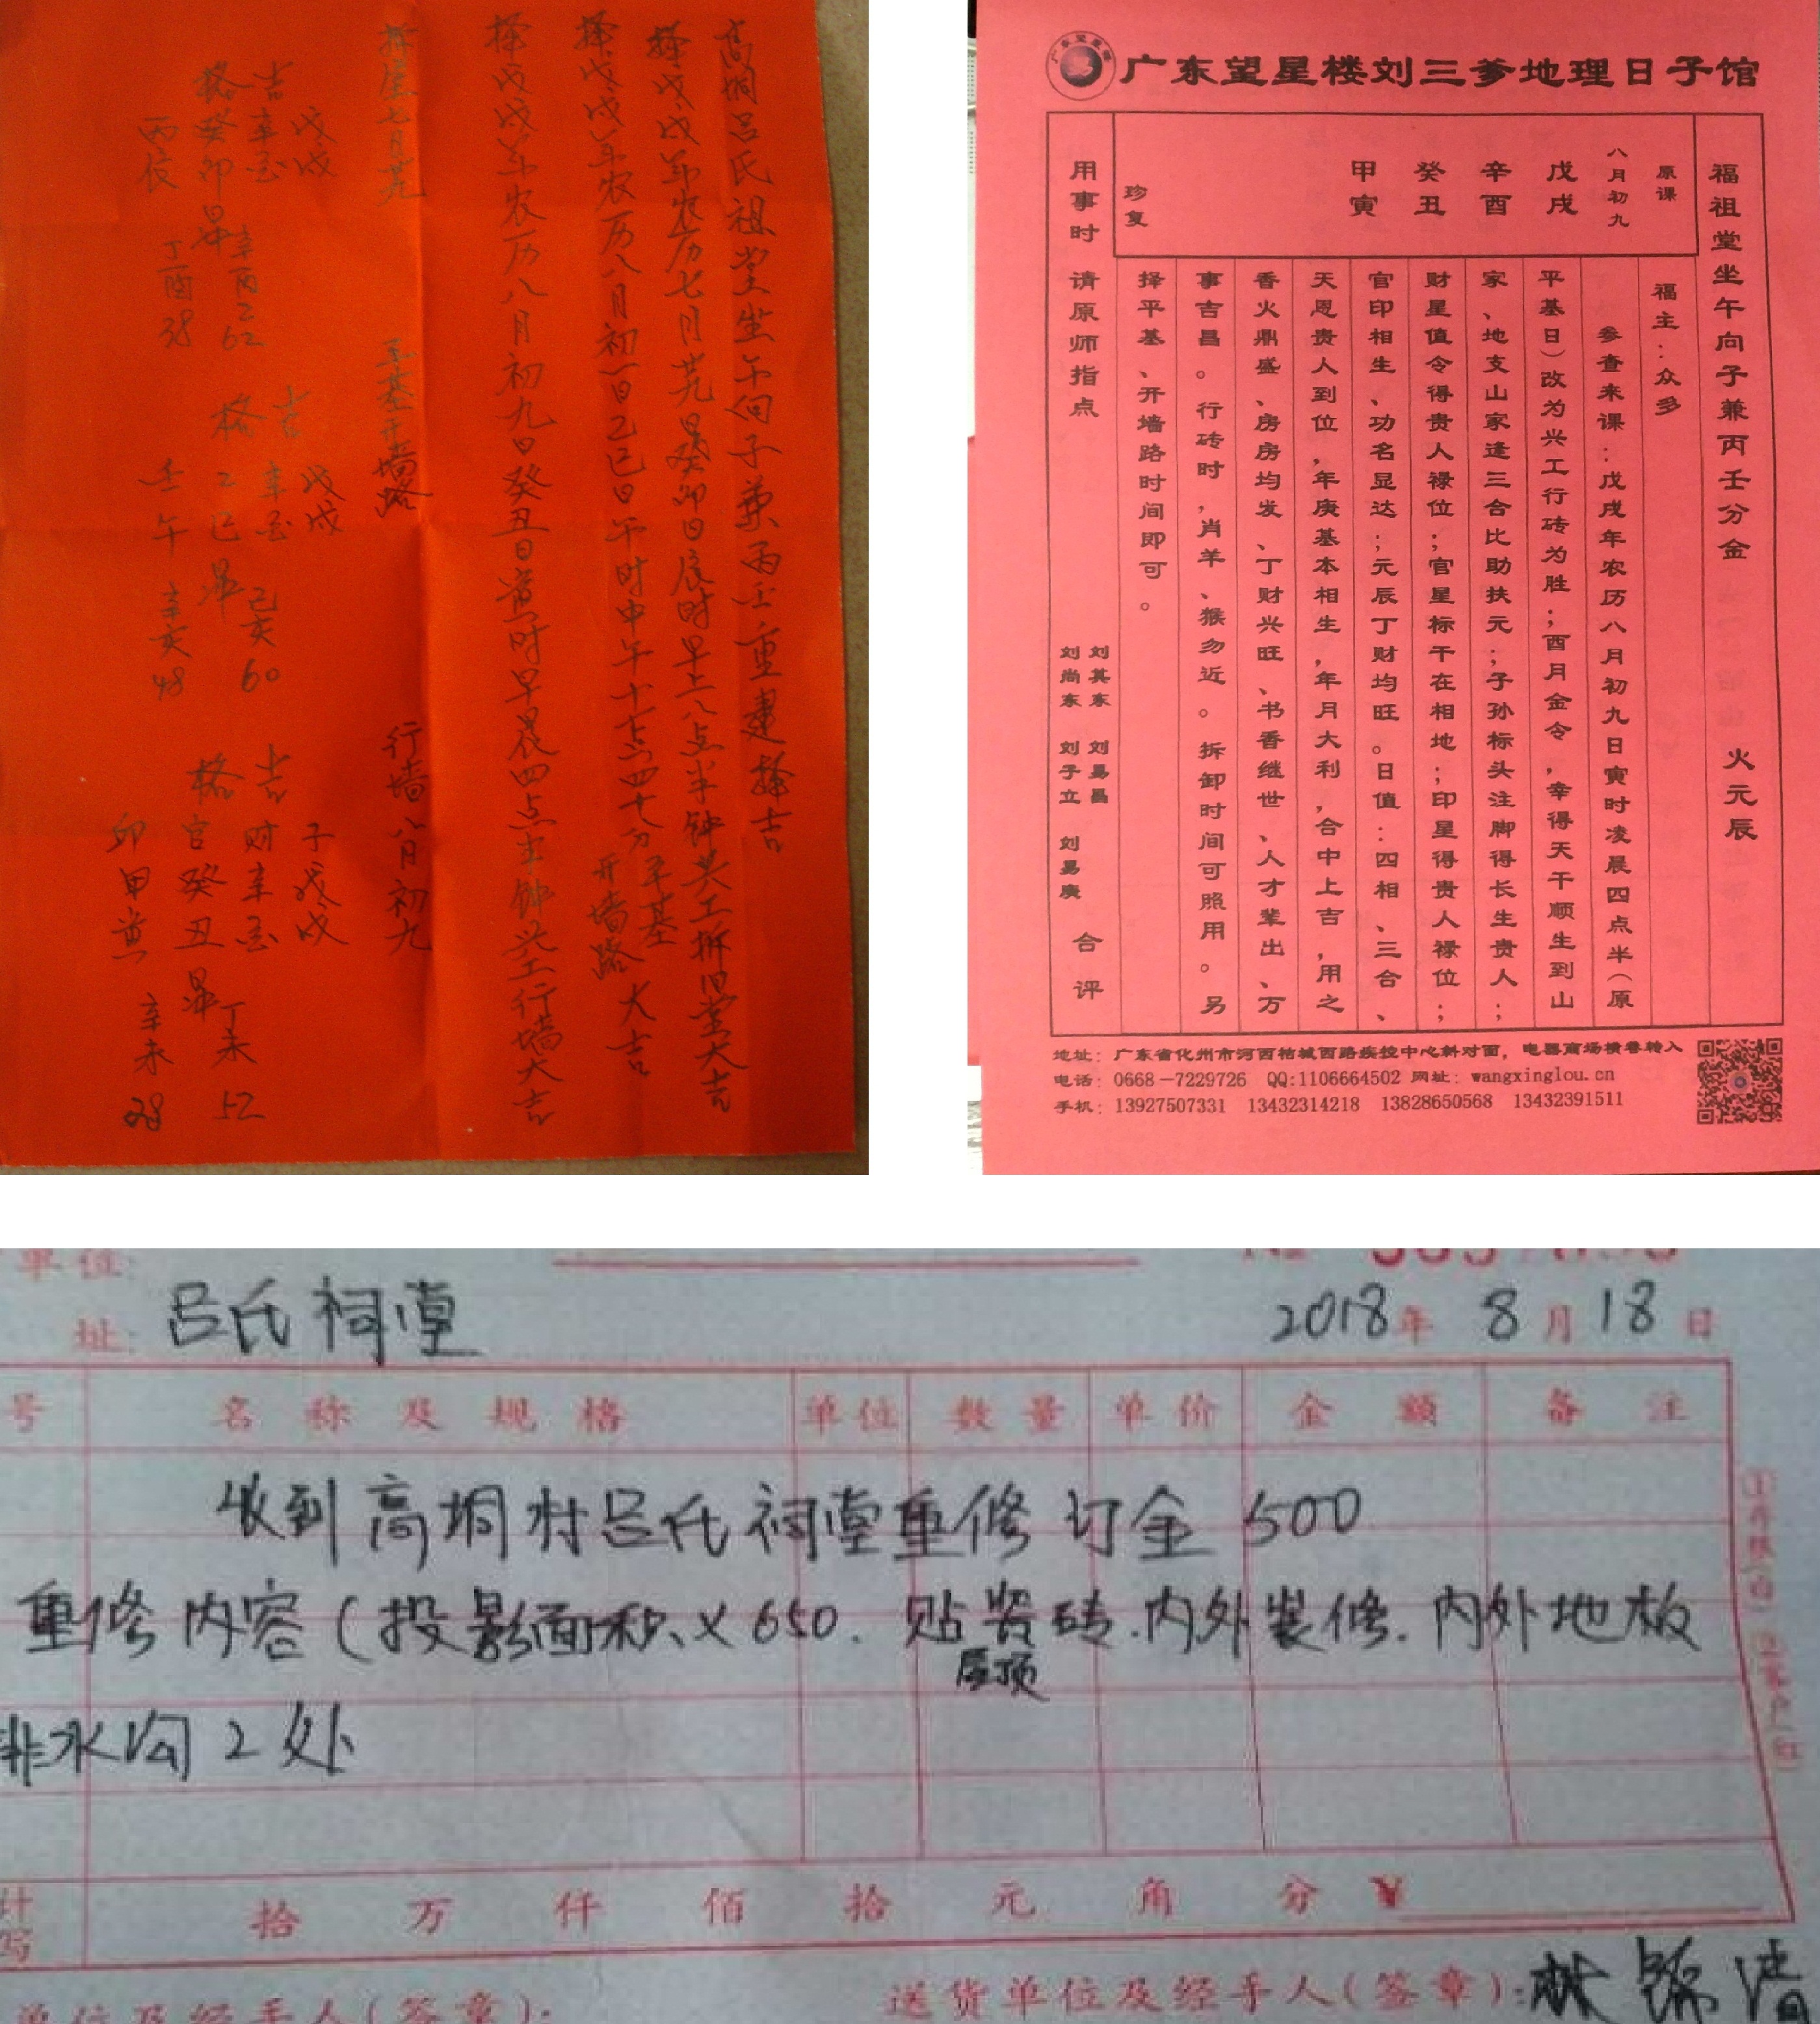 高垌吕氏祖堂坐午向子兼丙壬重建择吉
择戊戌年农历七月廿九日癸卯日辰时早上八点半钟兴工拆旧堂大吉
择戊戌年农历八月初一日乙巳日午时中午十一点四十分平基开墙路大吉
择丙戌年农历八月初九日癸丑日寅时早晨四点半钟兴工行墙大吉
拆屋七月廿九 平基开墙路 行墙八月初九
吉格
戊戌
辛酉
癸卯
丙辰
丁酉38
62
吉格
戊戌
辛酉
乙巳
壬午
己亥60
辛亥48
吉格
子戊戌
财辛酉
官癸丑
卯甲寅
丁未52
辛未28
广东望星楼刘三爹地理日子馆
福祖堂坐午向子兼丙壬分金 火元辰
原课
八月初九
戊戌
辛酉
癸丑
甲寅
珍复
福主：众多
参查来课：戊戌年农历八月初九日寅时凌晨四点半（原
平基日）改为兴工行砖为胜；酉月金令，辛得天干顺生到山
家、地支山家逢三合比助扶元；子孙标头注脚得长生贵人；
财星值令得贵人禄位；官星标干在相地；印星得贵人禄位；
官印相生、功名显达；元辰丁财均旺。日值：四相、三合、
天恩贵人到位，年庚基本相生，年月大利，合中上吉，用之
香火鼎盛、房房均发、丁财兴旺、书香继世、人才辈出、万
事吉昌。行砖时，肖羊、猴勿近。拆卸时间可照用。另
择平基、开墙路时间即可。
用事时 请原师指点
刘其东 刘易昌
刘尚东 刘子立 刘易庚 合评
地址：广东省化州市河西桔城西路疾控中心斜对面，电器商场横巷转入
电话：0668-7229726 QQ:1106664502 网址：wangxinglou.cn
手机：13927507331 13432314218 13828650568 13432391511
单位:
址: 吕氏祠堂 2018年 8月18日
号 名称及规格 单位 数量 单价 金额 备注
收到高垌村吕氏祠堂重修订金500
重修内容(投影面积×650.贴瓷砖.内外装修.内外地板
屋顶
排水沟2处
计写 拾 万 仟 佰 拾 元 角 分 ¥
单位及经手人(签章): 送货单位及经手人(签章):